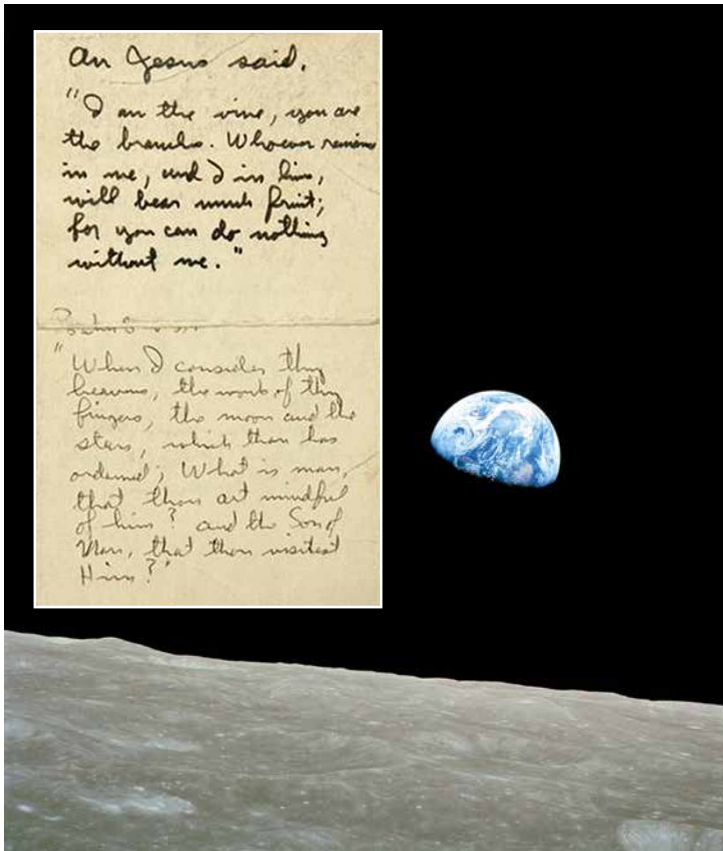 An Jesus said,
"I am the vine, you are
the branches. Whoever remains
in me, and I in him,
will bear much fruit;
for you can do nothing
without me."
Psalm 8
"When I consider thy
heavens, the work of thy
fingers, the moon and the
stars, which thou has
ordained; What is man,
that thou art mindful
of him? and the Son of
Man, that thou visitest
Him?"